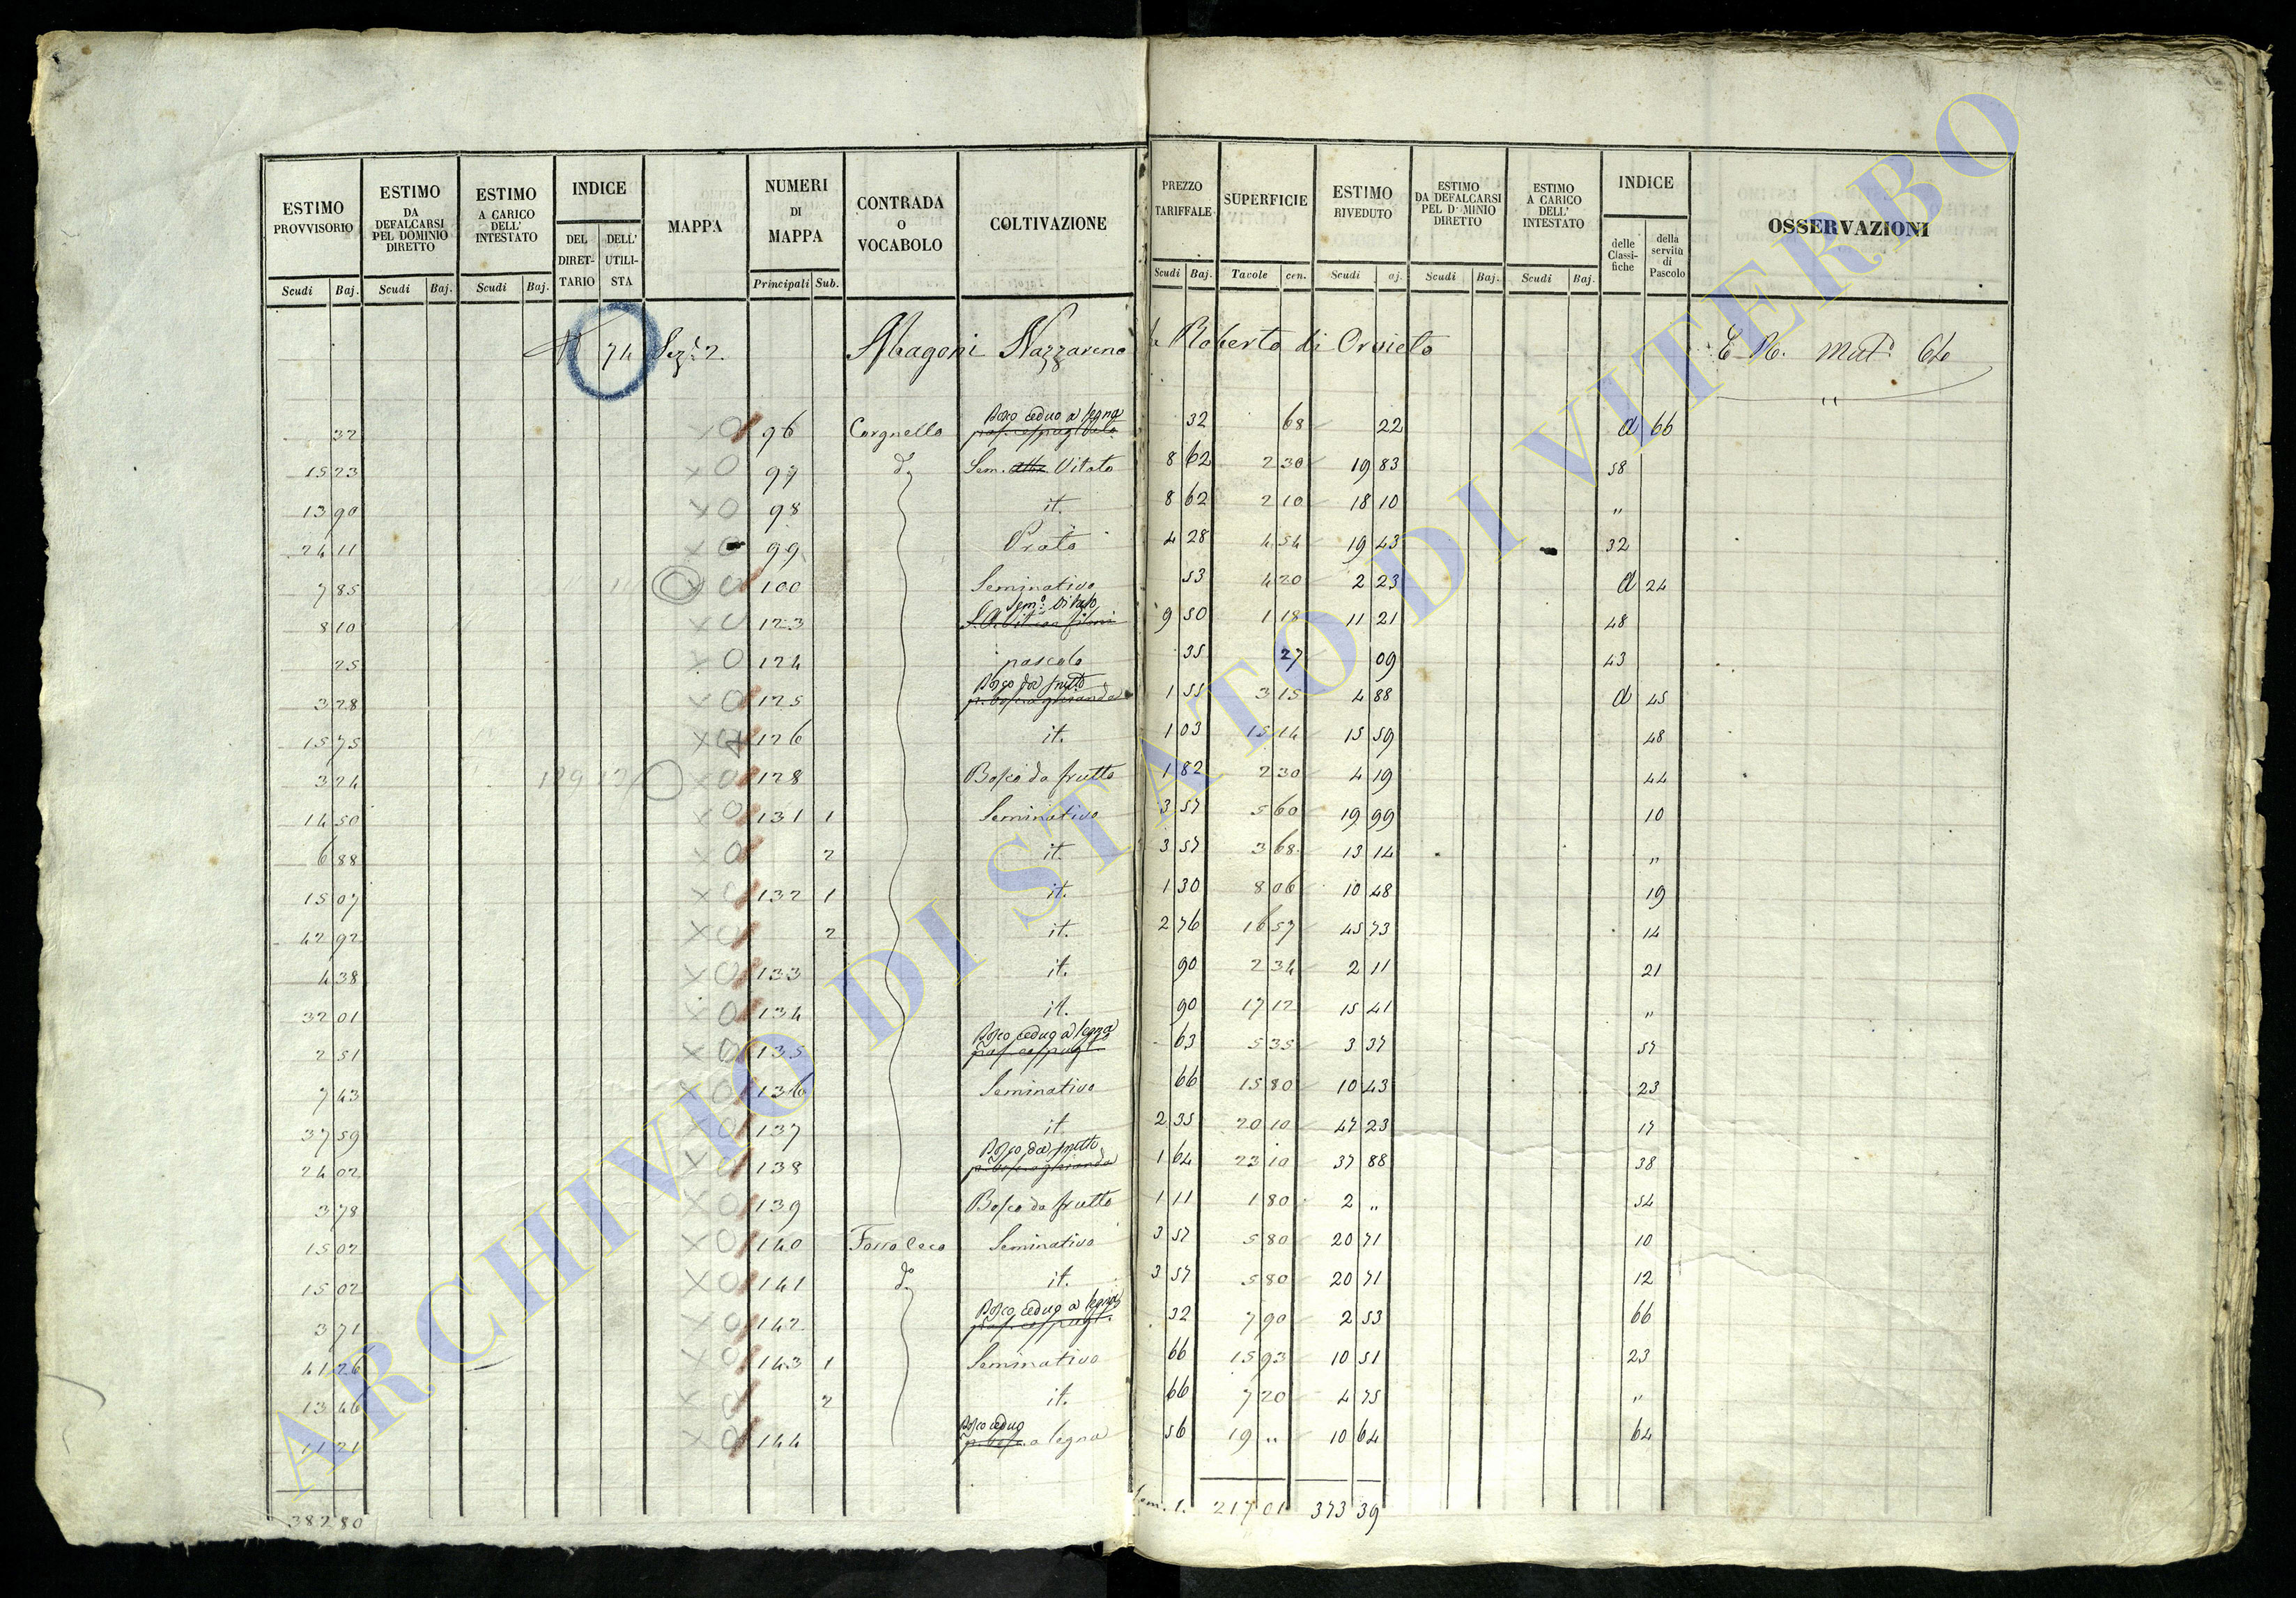 ESTIMO PROVVISORIO | ESTIMO DA DEFALCARSI PEL DOMINIO DIRETTO | ESTIMO A CARICO DELL' INTESTATO | INDICE | MAPPA | NUMERI DI MAPPA | CONTRADA O VOCABOLO | COLTIVAZIONE | PREZZO TARIFFALE | SUPERFICIE | ESTIMO RIVEDUTO | ESTIMO DA DEFALCARSI PEL D MINIO DIRETTO | ESTIMO A CARICO DELL' INTESTATO | INDICE | OSSERVAZIONI
DEL DIRET-TARIO | DELL' UTILI-STA | delle Classi-fiche | della servitù di Pascolo
Scudi Baj. | Scudi Baj. | Scudi Baj. | Principali Sub. | Scudi Baj. | Tavole cen. | Scudi aj. | Scudi Baj. | Scudi Baj.
74 Sez.e 2. Nazzareno Roberto di Orvieto mat. 64
32 X0 96 Corgnello Bosco ceduo a legna 32 68 22 a 66
15 23 X0 97 do Sem. Vitato 8 62 2 30 19 83 58
13 90 X0 98 it. 8 62 2 10 18 10 "
24 11 X0 99 Prato 4 28 4 54 19 43 32
7 85 X0 100 Seminativo 53 4 20 2 23 a 24
8 10 X0 123 Sem.o Vitato 9 50 1 18 11 21 48
25 X0 124 pascolo 35 27 09 43
3 28 X0 125 Bosco da frutto 1 55 3 15 4 88 a 45
15 75 X0 126 it. 1 03 15 14 15 59 48
3 24 X0 128 Bosco da frutto 1 82 2 30 4 19 44
14 50 X0 131 1 Seminativo 3 57 5 60 19 99 10
6 88 X0 2 it. 3 57 3 68 13 14 "
15 07 X0 132 1 it. 1 30 8 06 10 48 19
42 92 X0 2 it. 2 76 16 57 45 73 14
4 38 X0 133 it. 90 2 34 2 11 21
32 01 X0 134 it. 90 17 12 15 41 "
2 51 X0 135 Bosco ceduo a legna 63 5 35 3 37 57
7 43 X0 136 Seminativo 66 15 80 10 43 23
37 59 X0 137 it 2 35 20 10 47 23 17
24 02 X0 138 Bosco da frutto 1 64 23 10 37 88 38
3 78 X0 139 Bosco da frutto 1 11 1 80 2 " 54
15 02 X0 140 Seminativo 3 57 5 80 20 71 10
15 02 X0 141 do it. 3 57 5 80 20 71 12
3 71 X0 142 Bosco ceduo a legna 32 7 90 2 53 66
41 26 X0 143 1 Seminativo 66 15 93 10 51 23
13 46 X0 2 it. 66 7 20 4 75 "
11 21 X0 144 Bosco ceduo a legna 56 19 " 10 64 64
382 80 217 01 373 39
ARCHIVIO DI STATO DI VITERBO